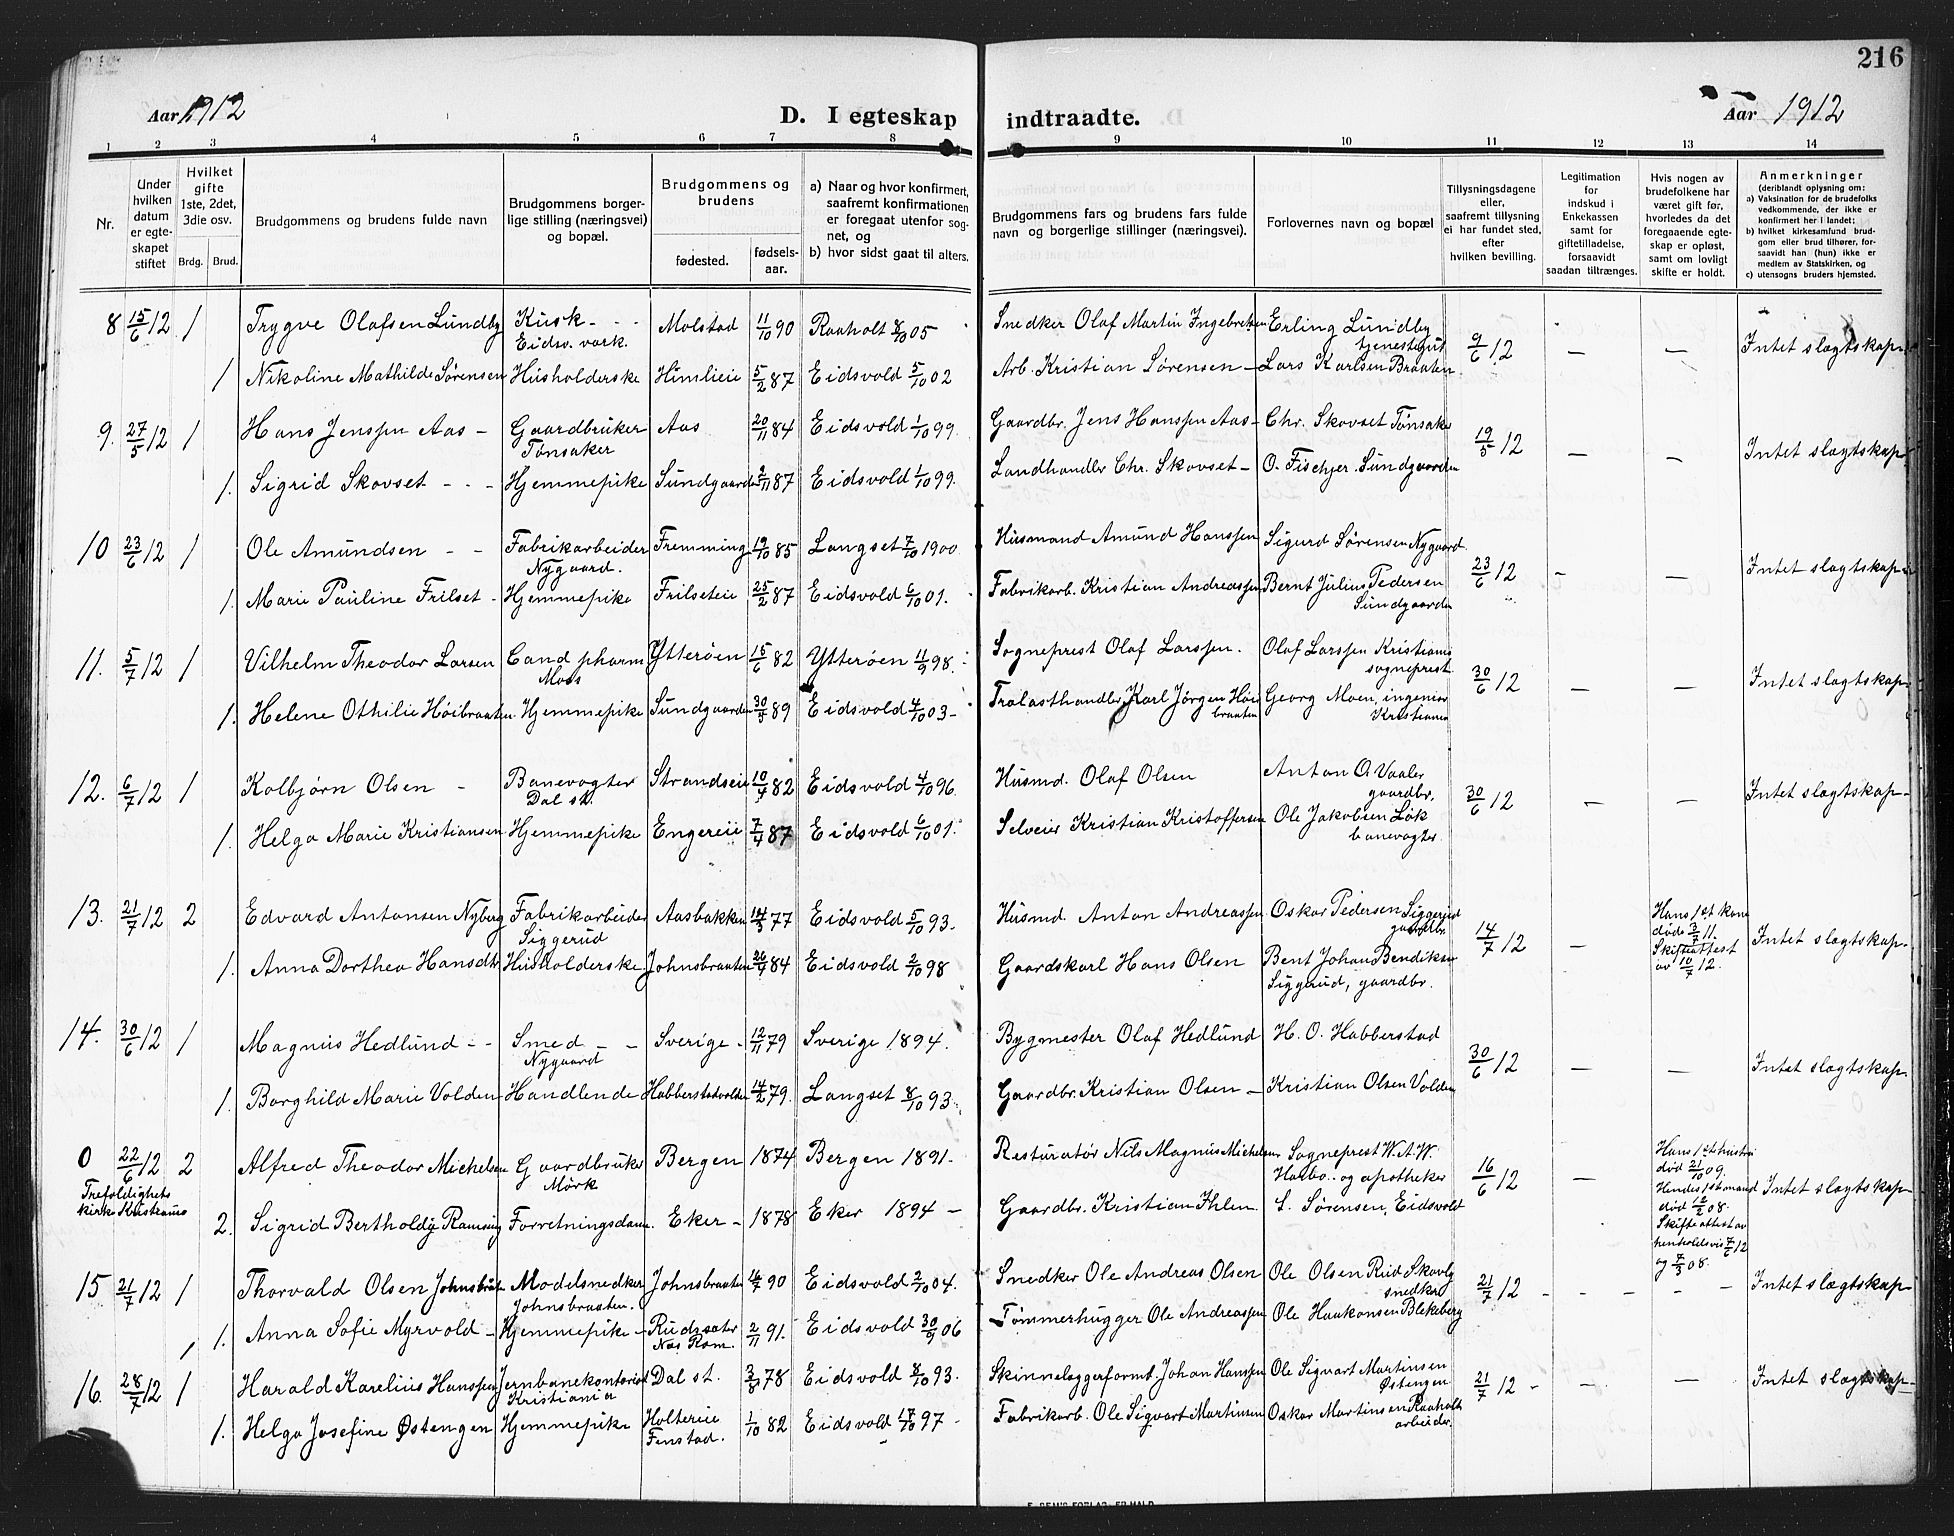 216
Aar 1912
D. I egteskap
indtraadte.
Aar 1912
1 2 3 4 5 6 7 8
9 10 11 12 13 14
Nr.
Under hvilken datum er egteskapet stiftet
Hvilket gifte 1ste, 2det, 3die osv.
Brdg. Brud.
Brudgommens og brudens fulde navn
Brudgommens borgerlige stilling (næringsvei) og bopæl.
Brudgommens og brudens
fødested.
fødselsaar.
a) Naar og hvor konfirmert, saafremt konfirmationen er foregaat utenfor sognet, og
b) hvor sidst gaat til alters.
Brudgommens fars og brudens fars fulde navn og borgerlige stillinger (næringsvei).
Forlovernes navn og bopæl
Tillysningsdagene eller, saafremt tillysning ei har fundet sted, efter hvilken bevilling.
Legitimation for indskud i Enkekassen samt for giftetilladelse, forsaavidt saadan tiltrænges.
Hvis nogen av brudefolkene har været gift før, hvorledes da det foregaaende egteskap er opløst, samt om lovligt skifte er holdt.
Anmerkninger
(deriblandt oplysning om:
a) Vaksination for de brudefolks vedkommende, der ikke er konfirmert her i landet;
b) hvilket kirkesamfund brudgom eller brud tilhører, forsaavidt han (hun) ikke er medlem av Statskirken, og
c) utensogns bruders hjemsted.
8 15/6 12 1 Trygve Olafsen Lundby Kusk - - Eidsv. verk. Molstad 11/10 90 Raaholt 8/10 05 Snedker Olaf Martin Ingebretsen Erling Lundby tjenestegut 9/6 12 — — Intet slægtskap.
1 Nikoline Mathilde Sørensen Husholderske Himlieie 5/2 87 Eidsvold 5/10 02 Arb. Kristian Sørensen — Lars Karlsen Braaten
9. 27/5 12 1 Hans Jenssen Aas - Gaardbruker Tønsaker Aas 20/11 84 Eidsvold 1/10 99. Gaardbr. Jens Hanssen Aas - Chr. Skovset Tønsaker 19/5 12 — — Intet slægtskap
1. Sigrid Skovset - - - Hjemmepike Sundgaarden 2/11 87 Eidsvold 1/10 99. Landhandler Chr. Skovset - O. Fischjer. Sundgaarden
10 23/6 12 1 Ole Amundsen - - Fabrikarbeider Nygaard. Fremming 19/10 85 Langset 7/10 1900 Husmand Amund Hanssen Sigurd Sørensen Nygaard 23/6 12 - — Intet slægtskap
1. Marie Pauline Frilset - Hjemmepike Frilseteie 25/2 87 Eidsvold 6/10 01. Fabrikarb. Kristian Andreassen Bernt Julius Pedersen Sundgaarden
11. 5/7 12 1 Vilhelm Theodor Larsen Cand pharm Moss Ytterøen 15/6 82 Ytterøen 11/9 98. Sogneprest Olaf Larssen. Olaf Larssen Kristians sogneprest 30/6 12 — — Intet slægtskap
1. Helene Othilie Høibraaten Hjemmepike Sundgaarden 30/5 89 Eidsvold 4/10 03 - Trælasthandler Karl Jørgen Høibraaten Georg Moen, ingeniør Kristiania
12. 6/7 12 1 Kolbjørn Olsen - Banevogter Dal st. Strandseie 10/4 82 Eidsvold 4/10 96. Husmd. Olaf Olsen Anton O. Vaaler gaardbr. 30/6 12 — — Intet slægtskap -
1. Helga Marie Kristiansen Hjemmepike Engereie 7/4 87 Eidsvold 6/10 01. Selveier Kristian Kristoffersen Ole Jakobsen Løk banevogter
13. 21/7 12 2 Edvard Antonsen Nyberg Fabrikarbeider Siggerud Aasbakken 14/3 77 Eidsvold 5/10 93. Husmd. Anton Andreassen Oskar Pedersen Siggerud gaardbr. 14/7 12 — Hans 1st kone døde 3/7 11. Skifteattest av 10/7 12. Intet slægtskap.
1. Anna Dorthea Hansdtr Husholderske Johnsbraaten 26/4 84 Eidsvold 2/10 98 Gaardskarl Hans Olsen Bent Johan Bendiksen Siggerud, gaardbr.
14. 30/6 12 1 Magnus Hedlund - - Smed - - Nygaard Sverige - 12/11 79 Sverige 1894. Bygmester Olaf Hedlund H. O. Habberstad 30/6 12 — — Intet slægtskap
1. Borghild Marie Volden Handlende Habberstadvolden 14/2 79. Langset 8/10 93. Gaardbr. Kristian Olsen — Kristian Olsen Volden
0 22/6 12 2 Alfred Theodor Michelsen Gaardbruker Mørk Bergen 1874 Bergen 1891. Resturatør Nils Magnus Michelsen Sogneprest W. A. W. Harbo.. og apotheker 16/6 12 — Hans 1st hustru død 21/10 09. Hendes 1st mand død 12/2 08. Skifteattest av henholdsvis 7/6 12 og 7/3 08. Intet slægtskap
Trefoldighets kirke Kristiania 2. Sigrid Bertholdje Ramsing Forretningsdame. Eker - 1878 Eker 1894 — Gaardbr. Kristian Ihlen S. Sørensen, Eidsvold
15 21/7 12 1 Thorvald Olsen Johnsbråten Modelsnedker Johnsbraaten. Johnsbraaten 16/7 90 Eidsvold 2/10 04. Snedker Ole Andreas Olsen Ole Olsen Rud Skovly snedker 21/7 12 - - - - Intet slægtskap
1. Anna Sofie Myrvold - Hjemmepike - Rudssæter Næs Rom. 2/11 91. Eidsvold 30/9 06 Tømmerhugger Ole Andreassen Ole Haakonsen Blekeberg
16. 28/7 12 1 Harald Karelius Hanssen Jernbanekontorist Kristiania Dal st. 3/8 78 Eidsvold 8/10 93. Skinnelæggerformd. Johan Hanssen Ole Sigvart Martinsen Østengen 21/7 12 - — — Intet slægtskap -
1. Helga Josefine Østengen Hjemmepike Holtereie Fenstad. 1/10 82 Eidsvold 17/10 97 - Fabrikarb. Ole Sigvart Martinsen Oskar Martinsen Raaholt arbeider.